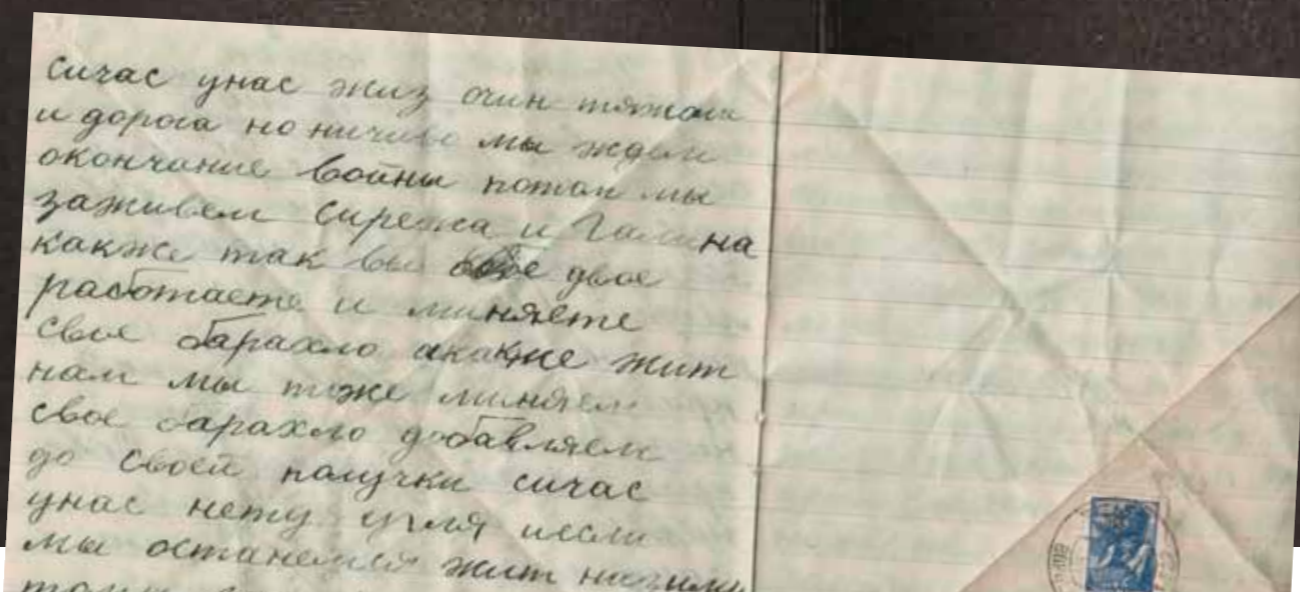 сичас унас жиз очин тяжоли
и дорога но ничиво мы ждем
окончание войны потом мы
заживем Сирежа и Галина
какже так вы двое
работаете и миняете
свое барахло акакже жит
нам мы тоже миняем
свое барахло добавляем
до своей получки сичас
унас нету угля иесли
мы останемся жит